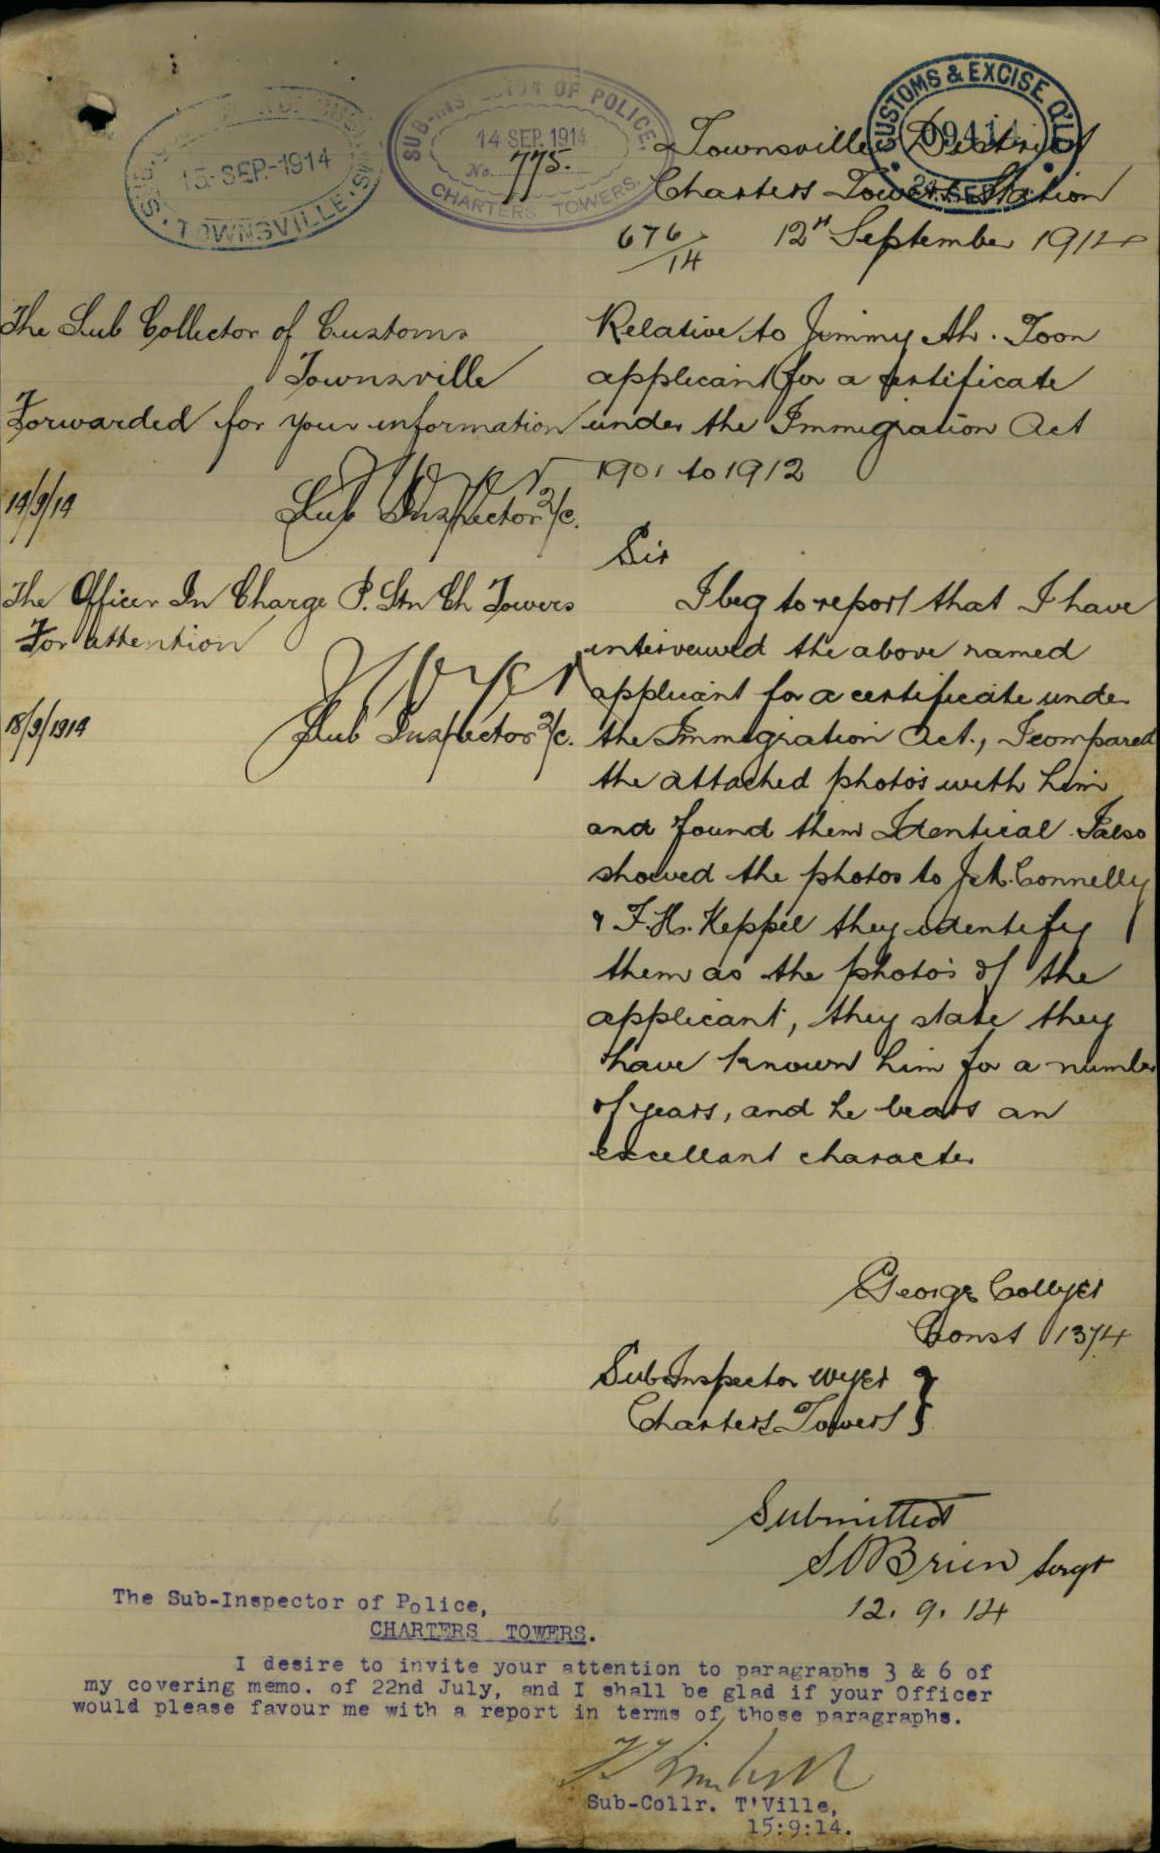 15-SEP.-1914
TOWNSVILLE
SUB-INSPECTOR OF POLICE.
14 SEP. 1914
No. 775.
CHARTERS TOWERS.
CUSTOMS & EXCISE Q'LD
09414
24 SEP
Townsville District
Charters Towers Station
676/14 12th September 1914
The Sub Collector of Customs
Townsville
Forwarded for your information
14/9/14 Sub Inspector 2/c.
The Officer In Charge P. Stn Ch Towers
For attention
18/9/1914 Sub Inspector 2/c.
Relative to Jimmy Ah. Toon
applicant for a certificate
under the Immigration Act
1901 to 1912
Sir
I beg to report that I have
interveiwed the above named
applicant for a certificate under
the Immigration Act., I compared
the attached photos with him
and found them Identical. I also
showed the photos to J.A. Connelly
& F.H. Keppel they identify
them as the photo's of the
applicant, they state they
have known him for a number
of years, and he bears an
excellant character
George Collyer
Const 1374
Sub Inspector Wyer
Charters Towers
Submitted
S OBrien Sergt
12. 9. 14
The Sub-Inspector of Police,
CHARTERS TOWERS.
I desire to invite your attention to paragraphs 3 & 6 of
my covering memo. of 22nd July, and I shall be glad if your Officer
would please favour me with a report in terms of those paragraphs.
Sub-Collr. T'Ville,
15:9:14.